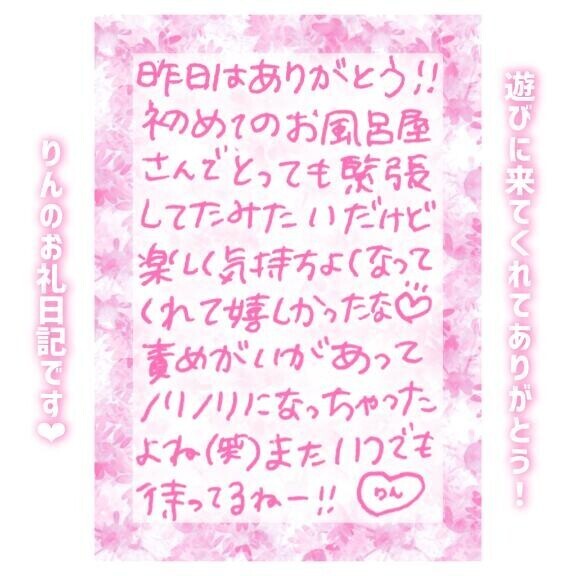 遊びに来てくれてありがとう!
昨日はありがとう!!
初めてのお風呂屋
さんでとっても緊張
してたみたいだけど
楽しく気持ちよくなって
くれて嬉しかったな♡
責めがいがあって
ノリノリになっちゃった
よね(笑)またいつでも
待ってるねー!!
りん
りんのお礼日記です❤